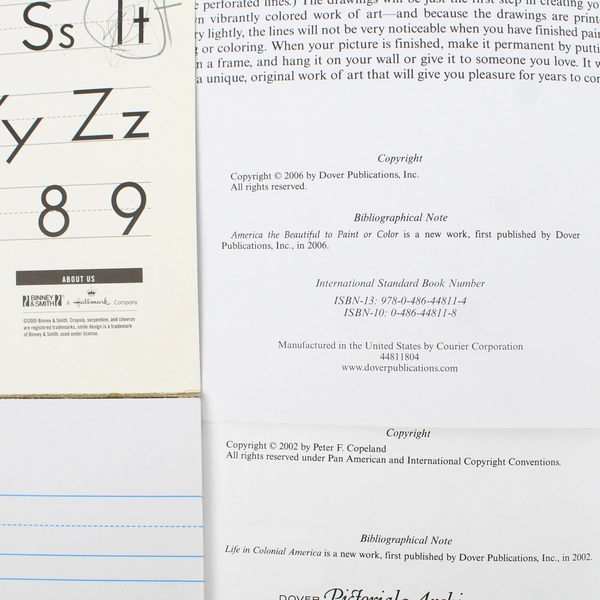 Ss Tt
Yy Zz
8 9
ABOUT US
BINNEY & SMITH A Hallmark Company
©2005 Binney & Smith. Crayola, serpentine, and chevron
are registered trademarks, smile design is a trademark
of Binney & Smith, used under license.
perforated lines.) The drawings will be just the first step in creating
vibrantly colored work of art—and because the drawings are
lightly, the lines will not be very noticeable when you have finished
or coloring. When your picture is finished, make it permanent by
a frame, and hang it on your wall or give it to someone you love. It
a unique, original work of art that will give you pleasure for years to
Copyright
Copyright © 2006 by Dover Publications, Inc.
All rights reserved.
Bibliographical Note
America the Beautiful to Paint or Color is a new work, first published by Dover
Publications, Inc., in 2006.
International Standard Book Number
ISBN-13: 978-0-486-44811-4
ISBN-10: 0-486-44811-8
Manufactured in the United States by Courier Corporation
44811804
www.doverpublications.com
Copyright
Copyright © 2002 by Peter F. Copeland
All rights reserved under Pan American and International Copyright Conventions.
Bibliographical Note
Life in Colonial America is a new work, first published by Dover Publications, Inc., in 2002.
DOVER Pictorial